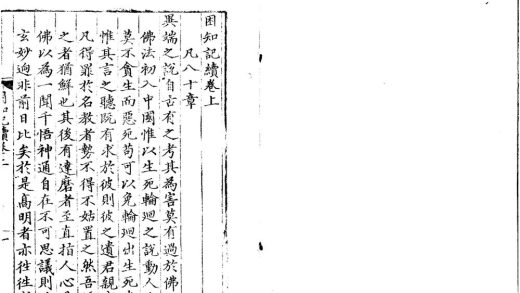 困知記續卷上
凡八十章
異端之說自古有之考其為害莫有過於佛
佛法初入中國惟以生死輪廻之說動人
莫不貪生而惡死苟可以免輪廻出生死
惟其言之聽既有求於彼則彼之遺君親
凡得罪於名教者勢不得不姑置之然吾
之者猶鮮也其後有達磨者至直指人心
佛以為一聞千悟神通自在不可思議則
玄妙逈非前日比矣於是高明者亦徃徃
困知記續卷上
一